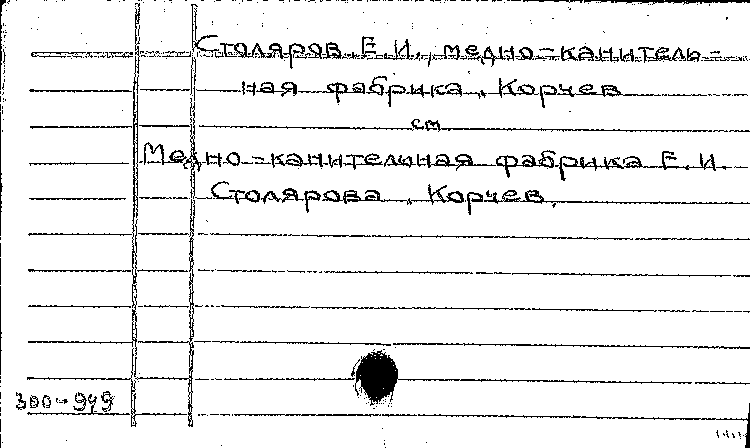 Столяров Е.И., медно-канитель-
ная фабрика, Корчев
см
Медно-канительная фабрика Е. И.
Столярова, Корчев.
300-949